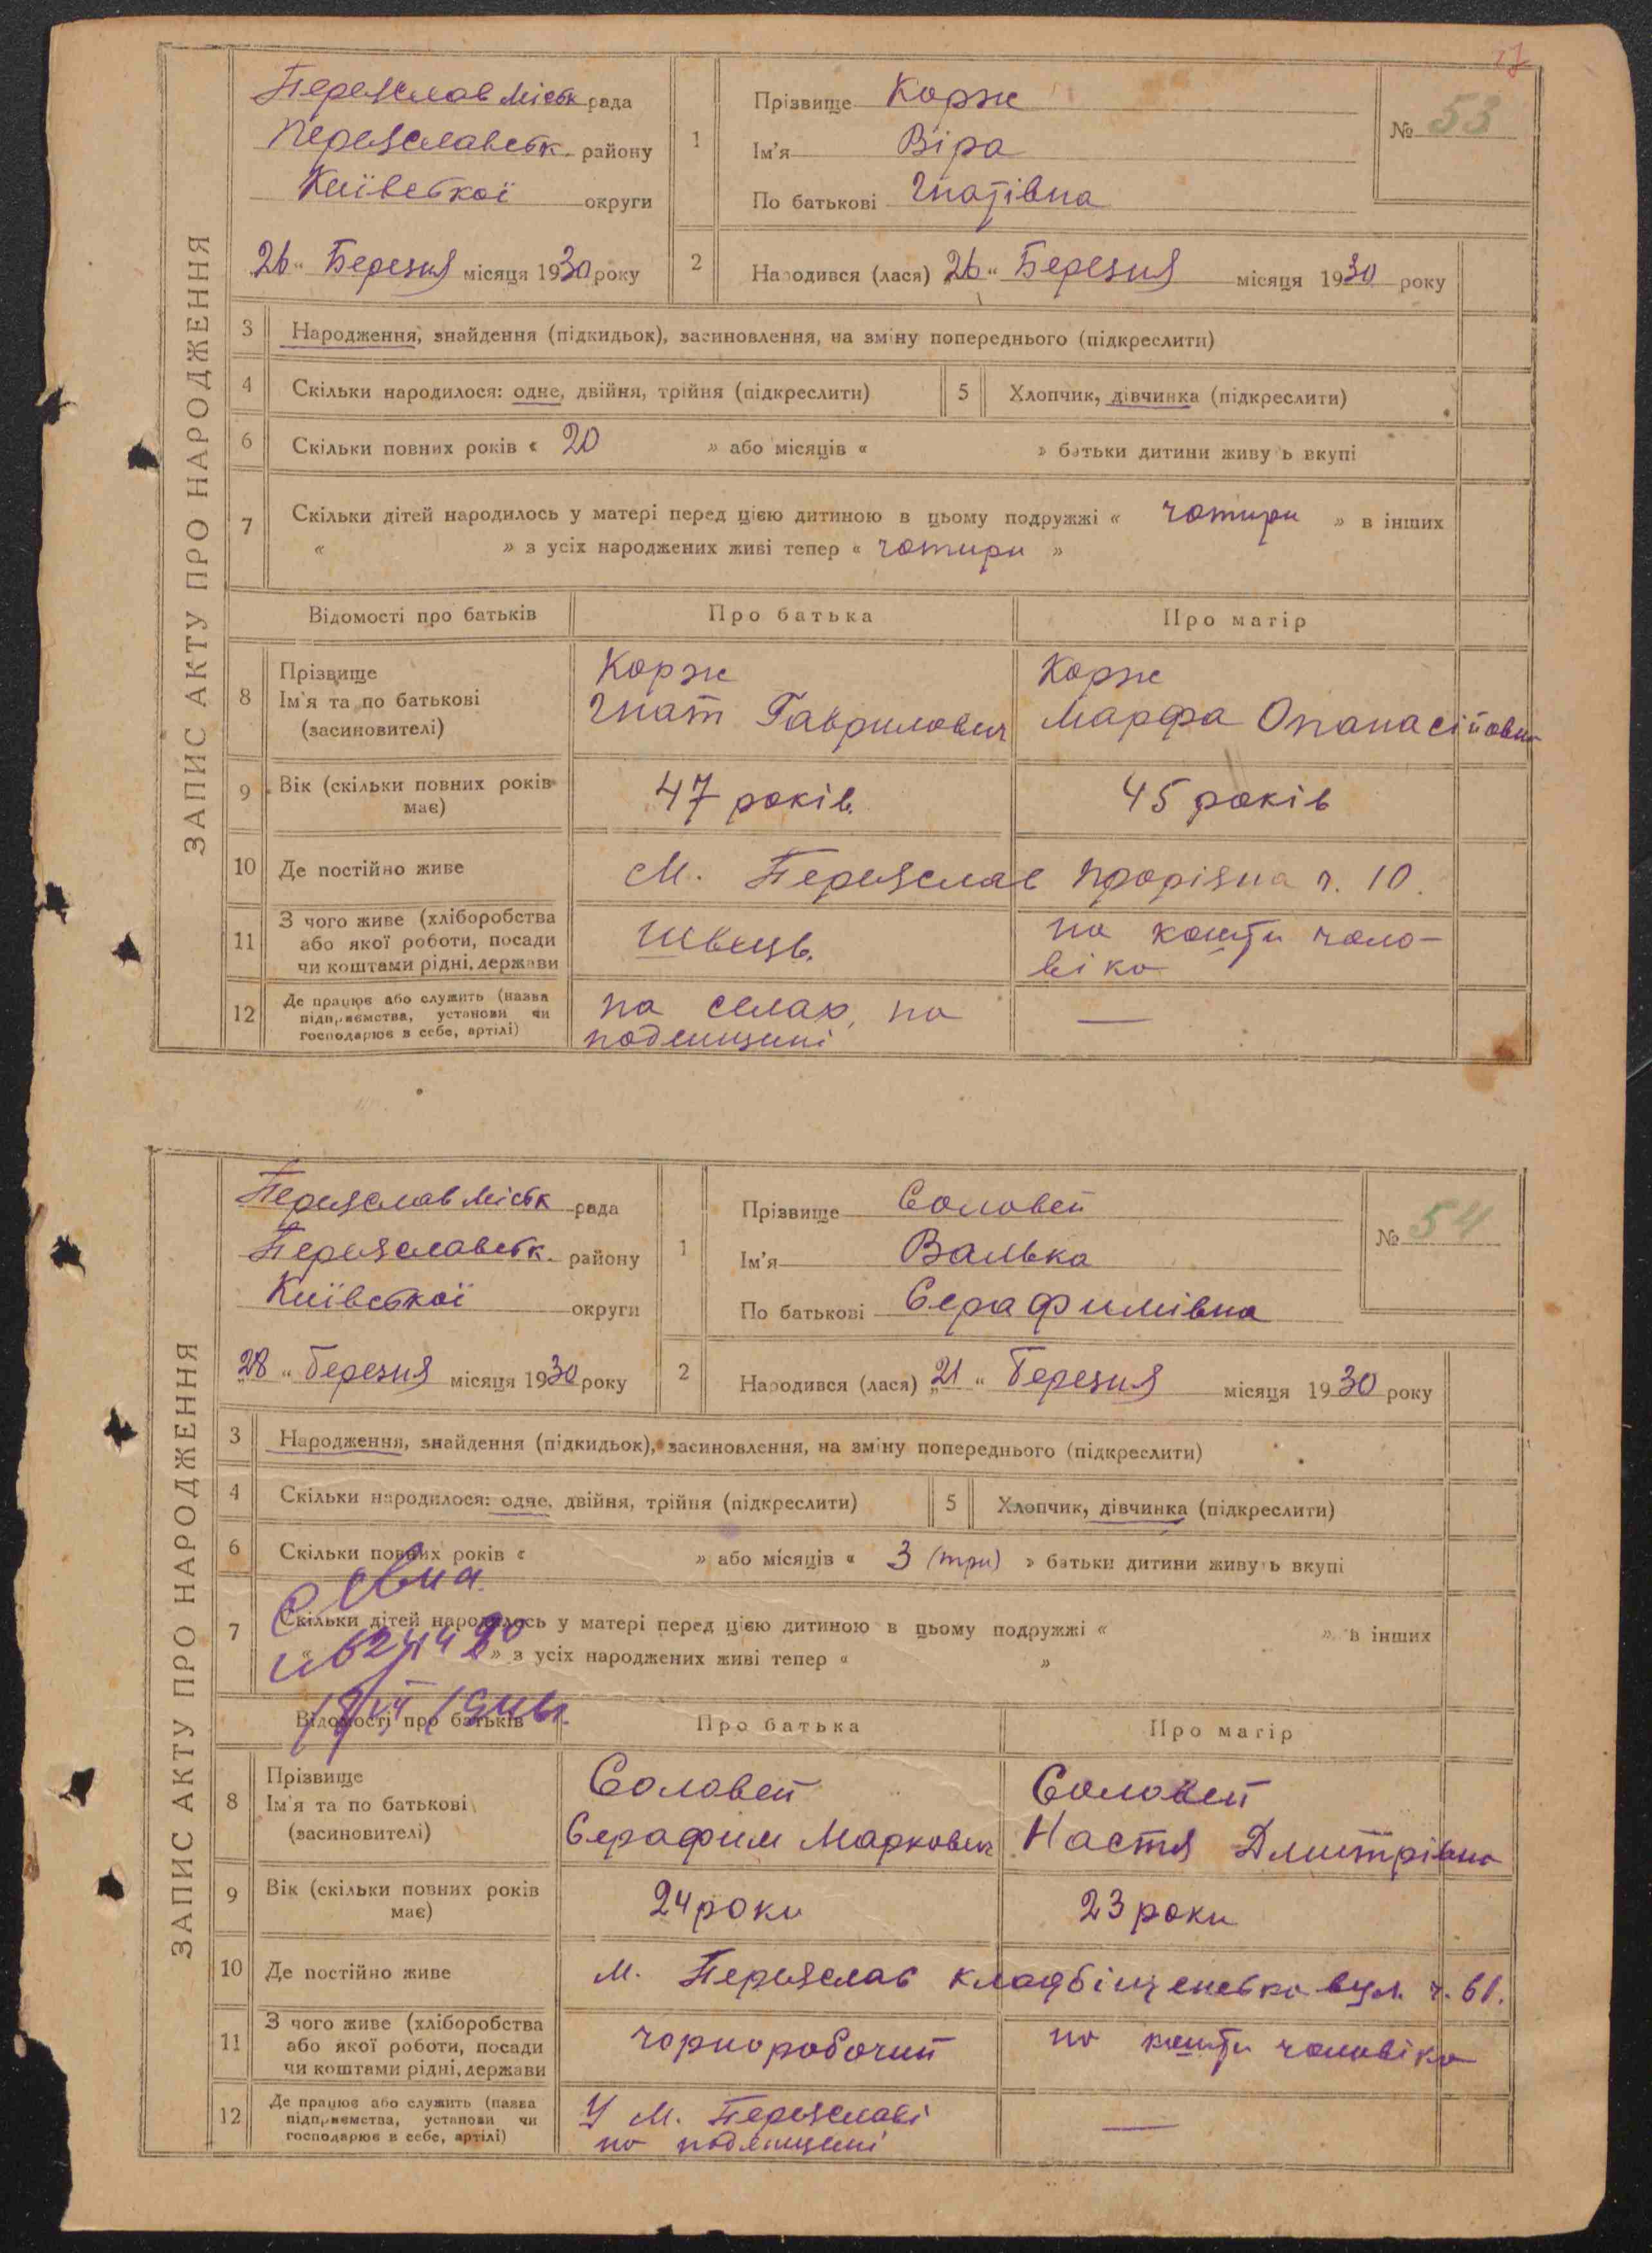 27
ЗАПИС АКТУ ПРО НАРОДЖЕННЯ
Переяслав Міськ рада
Переяславськ. району
Київської округи
26 " Березня місяця 1930 року
1
Прізвище Корж
Ім'я Віра
По батькові Гнатівна
№ 53
2
Народився (лася) 26 " Березня місяця 1930 року
3 Народження, знайдення (підкидьок), засиновлення, на зміну попереднього (підкреслити)
4 Скільки народилося: одне, двійня, трійня (підкреслити) 5 Хлопчик, дівчинка (підкреслити)
6 Скільки повних років « 20 » або місяців « » батьки дитини живуть вкупі
7 Скільки дітей народилось у матері перед цією дитиною в цьому подружжі « чотири » в інших
« » з усіх народжених живі тепер « чотири »
Відомості про батьків Про батька Про матір
8 Прізвище
Ім'я та по батькові
(засиновителі)
Корж
Гнат Гаврилович
Корж
Марфа
9 Вік (скільки повних років
має)
47 років.
45 років
10 Де постійно живе
м. Переяслав ч. 10.
11 З чого живе (хліборобства
або якої роботи, посади
чи коштами рідні, держави
Швець.
на кошти чоло-
віка
12 Де працює або служить (назва
підприємства, установи чи
господарює в себе, артілі)
на селах, на
поденщині
—
ЗАПИС АКТУ ПРО НАРОДЖЕННЯ
Переяслав Міськ рада
Переяславськ. району
Київської округи
28 " березня місяця 1930 року
1
Прізвище Соловей
Ім'я Валька
По батькові Серафимівна
№ 54
2
Народився (лася) 21 " Березня місяця 1930 року
3 Народження, знайдення (підкидьок), засиновлення, на зміну попереднього (підкреслити)
4 Скільки народилося: одне, двійня, трійня (підкреслити) 5 Хлопчик, дівчинка (підкреслити)
6 Скільки повних років « » або місяців « 3 (три) » батьки дитини живуть вкупі
7 Скільки дітей народилось у матері перед цією дитиною в цьому подружжі « » в інших
« » з усіх народжених живі тепер « »
Відомості про батьків Про батька Про матір
8 Прізвище
Ім'я та по батькові
(засиновителі)
Соловей
Серафим Маркович
Соловей
Настя Дмитрівна
9 Вік (скільки повних років
має)
24 роки
23 роки
10 Де постійно живе
м. Переяслав вул. ч. 61.
11 З чого живе (хліборобства
або якої роботи, посади
чи коштами рідні, держави
чорноробочий
на кошти чоловіка
12 Де працює або служить (назва
підприємства, установи чи
господарює в себе, артілі)
У м. Переяславі
на поденщині
—